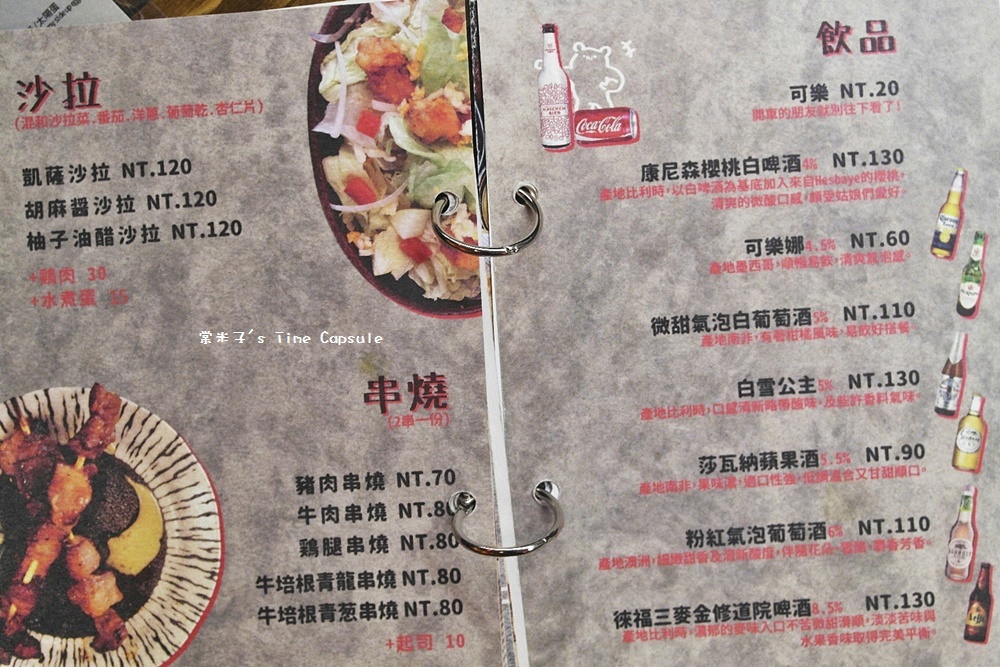 沙拉
(混和沙拉菜.番茄.洋蔥.葡萄乾.杏仁片)
凱薩沙拉 NT.120
胡麻醬沙拉 NT.120
柚子油醋沙拉 NT.120
+鷄肉 30
+水煮蛋 15
棠米子's Time Capsule
串燒
(2串一份)
豬肉串燒 NT.70
牛肉串燒 NT.80
鷄腿串燒 NT.80
牛培根青龍串燒 NT.80
牛培根青葱串燒 NT.80
+起司 10
飲品
Coca-Cola
可樂 NT.20
開車的朋友就別往下看了!
康尼森櫻桃白啤酒4% NT.130
產地比利時,以白啤酒為基底加入來自Hesbaye的櫻桃,
清爽的微酸口感,頗受姑娘們愛好。
可樂娜4.5% NT.60
產地墨西哥,順暢易飲,清爽無澀感。
微甜氣泡白葡萄酒5% NT.110
產地南非,有著柑橘風味,易飲好搭餐
白雪公主5% NT.130
產地比利時,口感清新略帶酸味,及些許香料氣味。
莎瓦納蘋果酒5.5% NT.90
產地南非,果味濃,適口性強,低調溫合又甘甜順口。
粉紅氣泡葡萄酒6% NT.110
產地澳洲,細緻甜香及清新酸度,伴隨花朵、麝香芳香。
徠福三麥金修道院啤酒8.5% NT.130
產地比利時,濃郁的麥味入口不苦微甜滑順,淡淡苦味與
水果香味取得完美平衡。